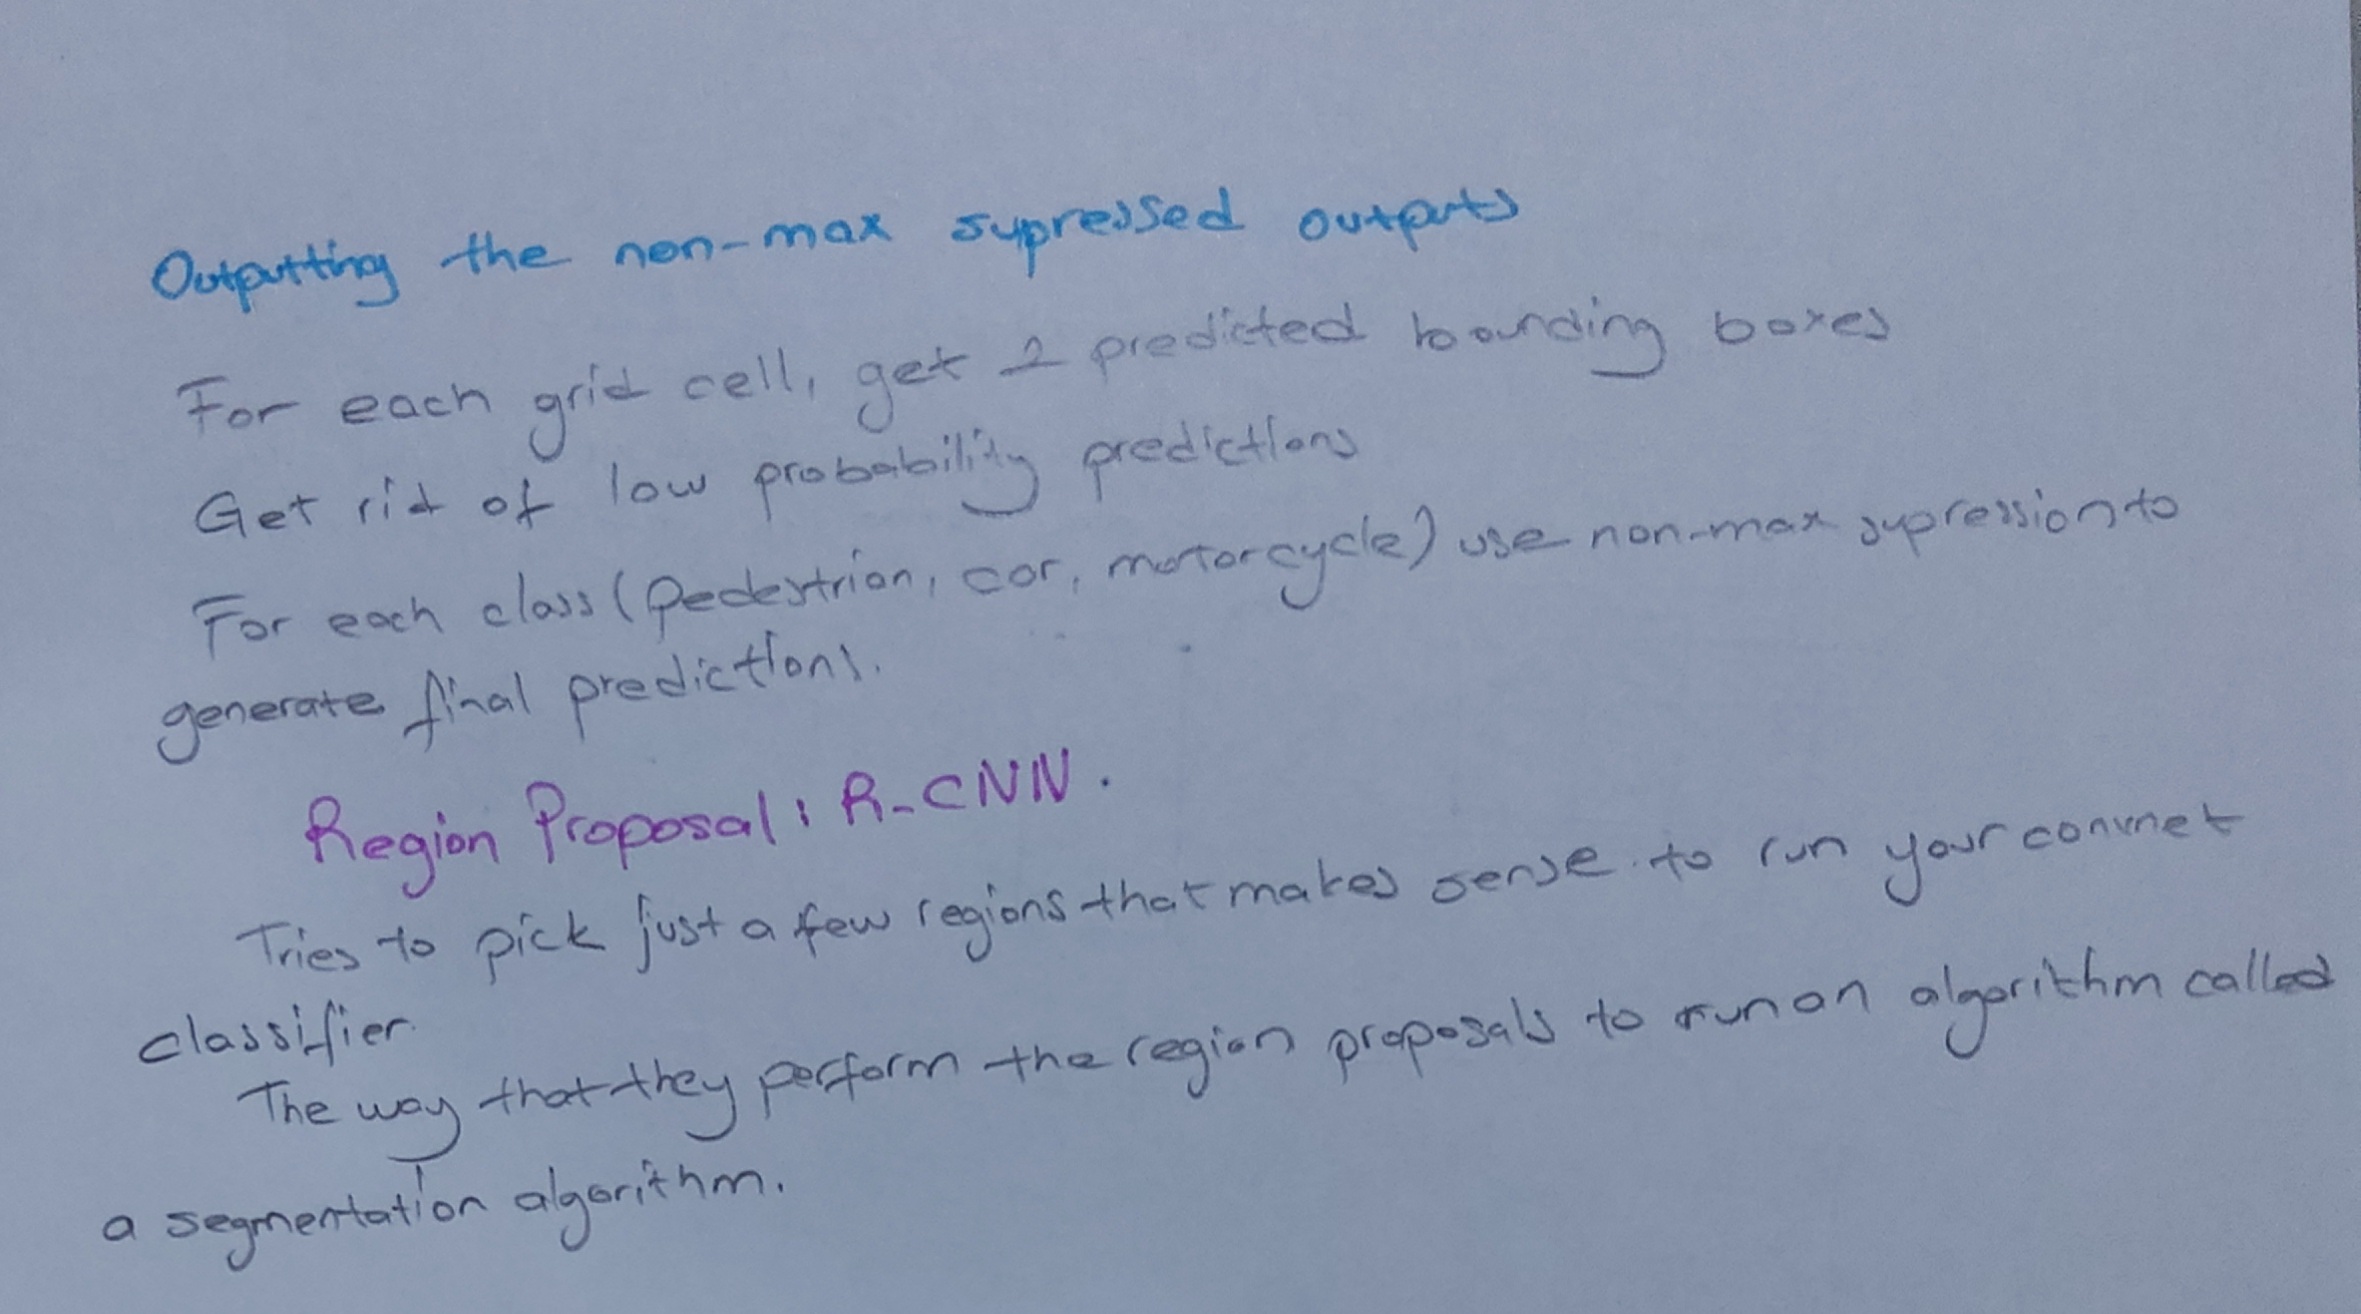 Outputting the non-max supressed outputs
For each grid cell, get 2 predicted bounding boxes
Get rid of low probability predictions
For each class (pedestrian, car, motorcycle) use non-max supression to
generate final predictions.
Region Proposal: R-CNN.
Tries to pick just a few regions that makes sense to run your convnet
classifier.
The way that they perform the region proposals to run an algorithm called
a segmentation algorithm.